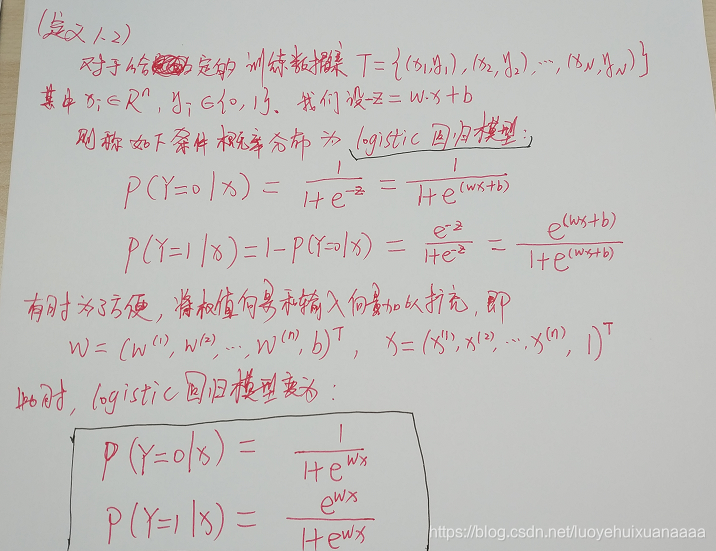 (定义1-2)
对于给定的训练数据集 T={(x₁,y₁), (x₂,y₂), ..., (x_N,y_N)}
其中 xᵢ∈Rⁿ, yᵢ∈{0,1}. 我们设-z=w·x+b
则称如下条件概率分布为 logistic 回归模型:
P(Y=0|x) = 1/(1+e^(-z)) = 1/(1+e^(wx+b))
P(Y=1|x)=1-P(Y=0|x) = e^(-z)/(1+e^(-z)) = e^(wx+b)/(1+e^(wx+b))
有时为了方便, 将权值向量和输入向量加以扩充, 即
w=(w⁽¹⁾, w⁽²⁾, ..., w⁽ⁿ⁾, b)ᵀ, x=(x⁽¹⁾, x⁽²⁾, ..., x⁽ⁿ⁾, 1)ᵀ
此时, logistic 回归模型变为:
P(Y=0|x) = 1/(1+e^(wx))
P(Y=1|x) = e^(wx)/(1+e^(wx))
https://blog.csdn.net/luoyehuixuanaaaa